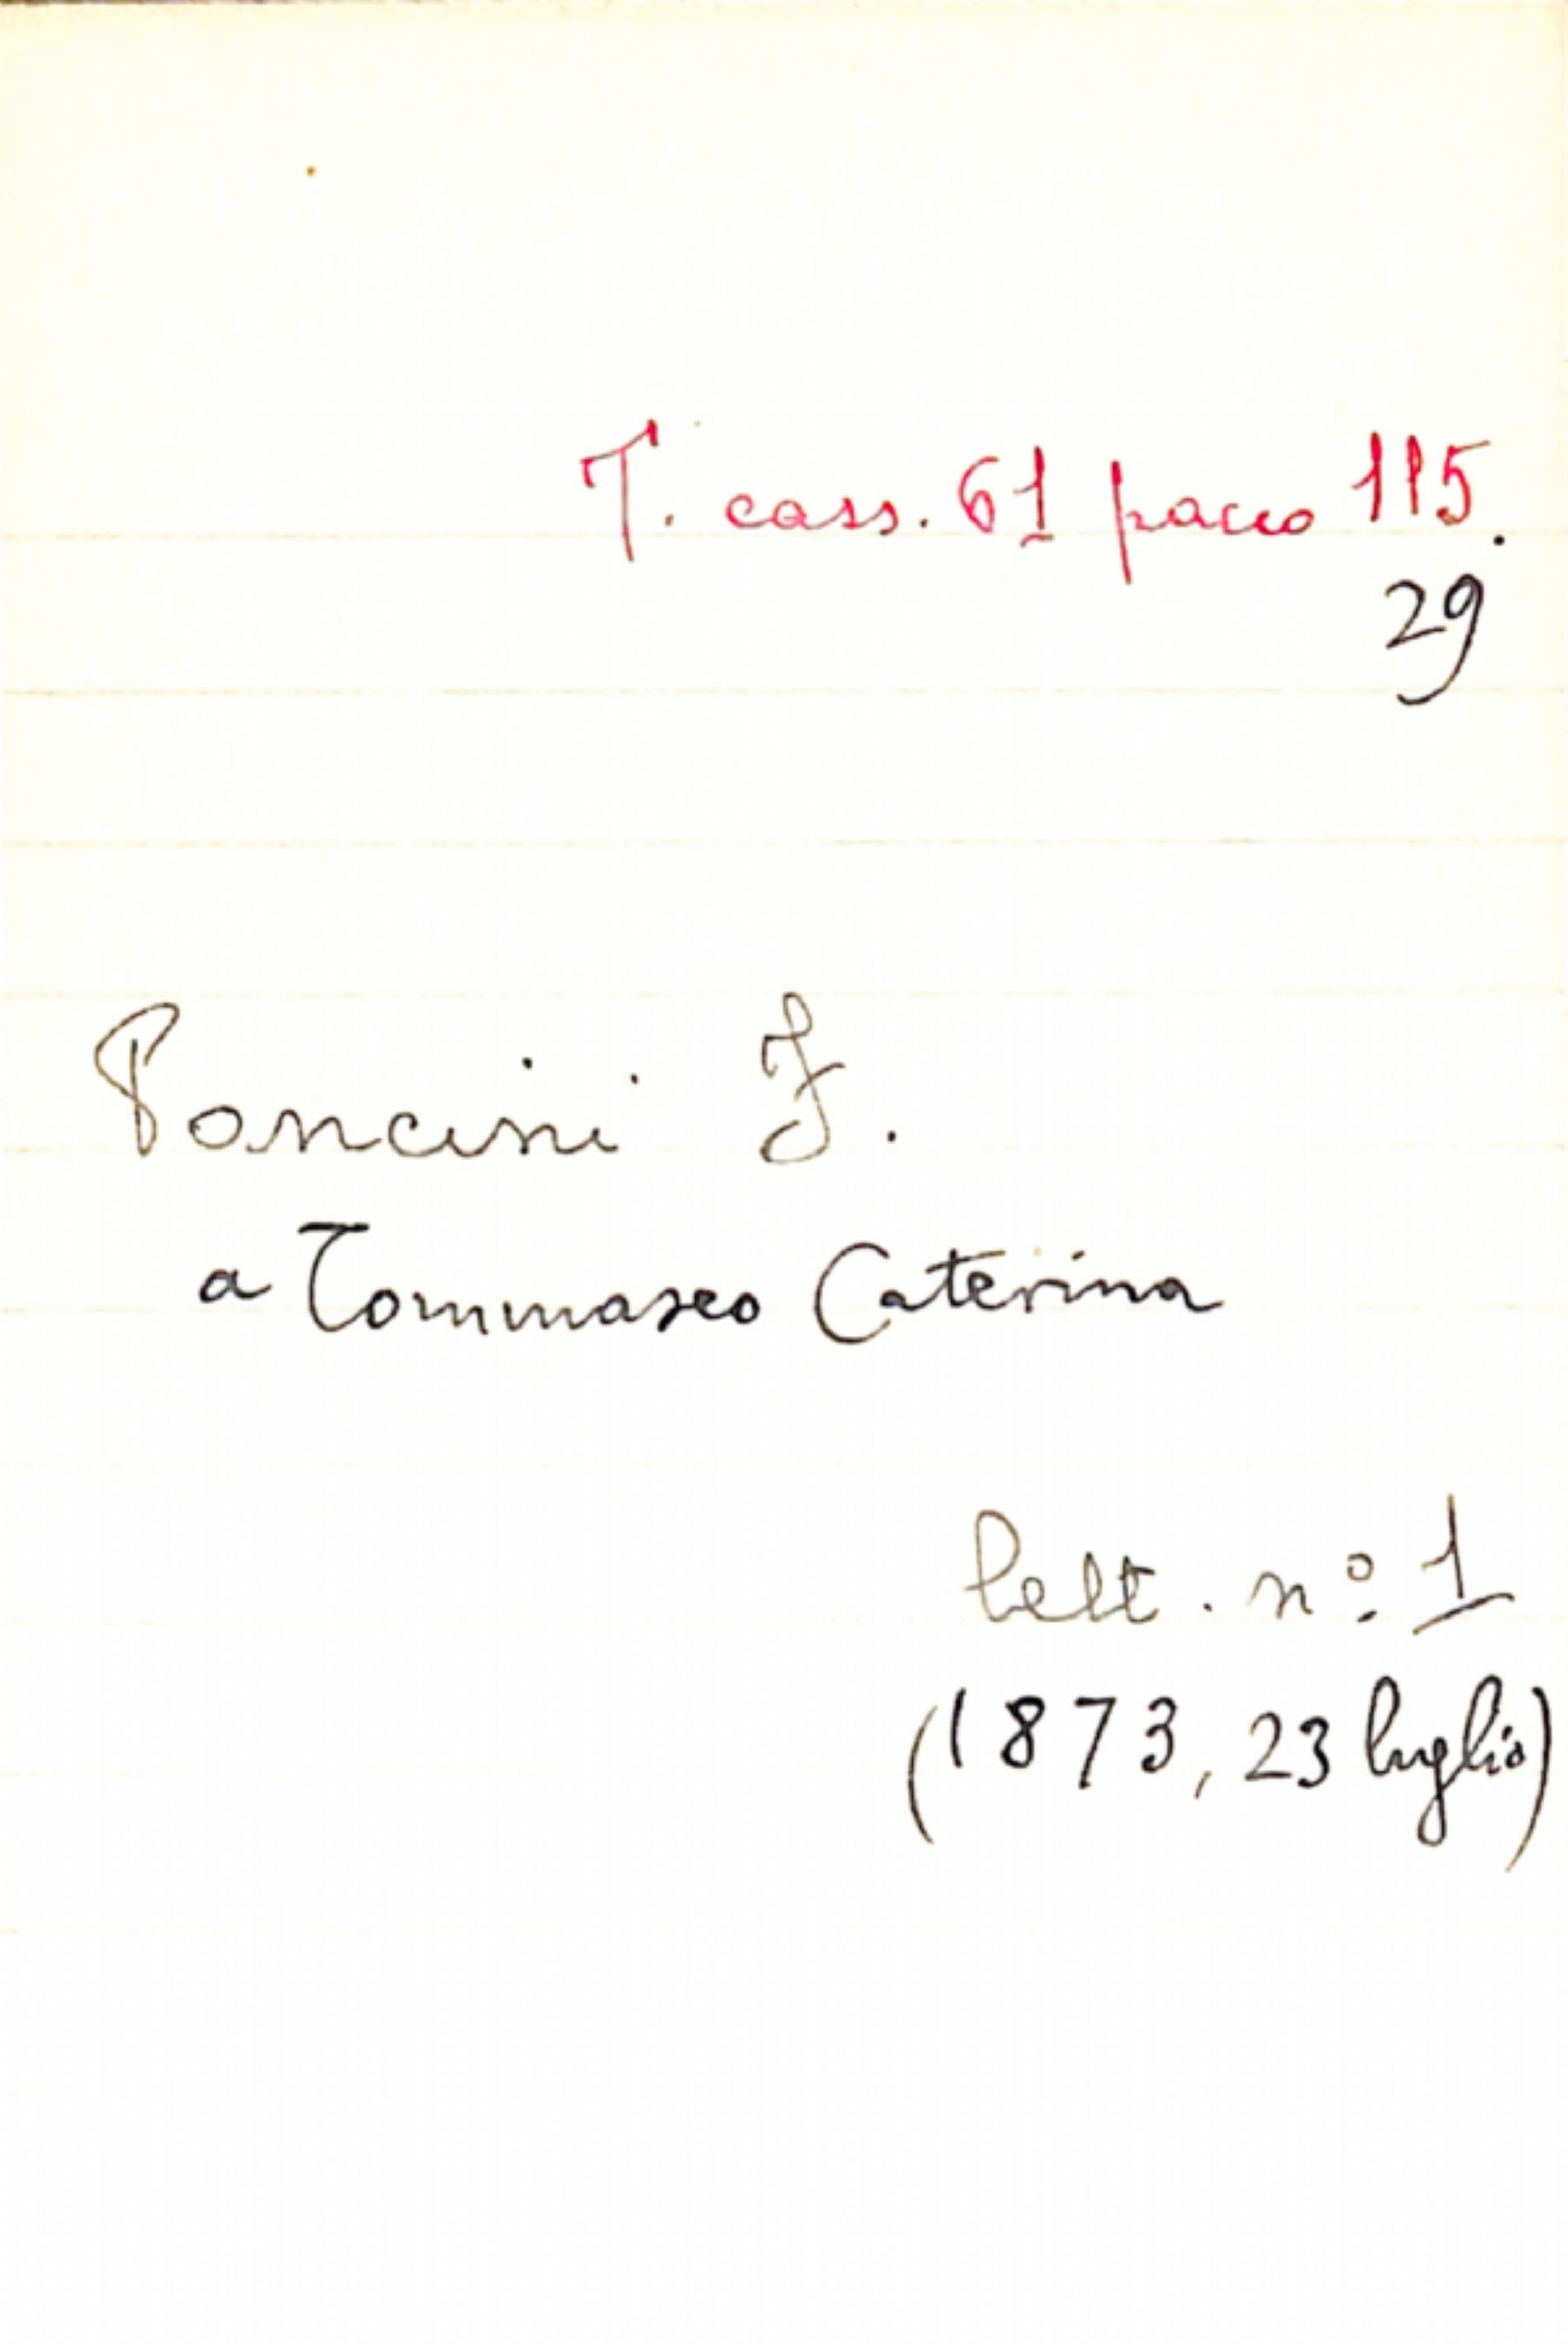 T. cass. 61 pacco 115.
29
Poncini F.
a Tommaseo Caterina
lett. nº 1
(1873, 23 luglio)